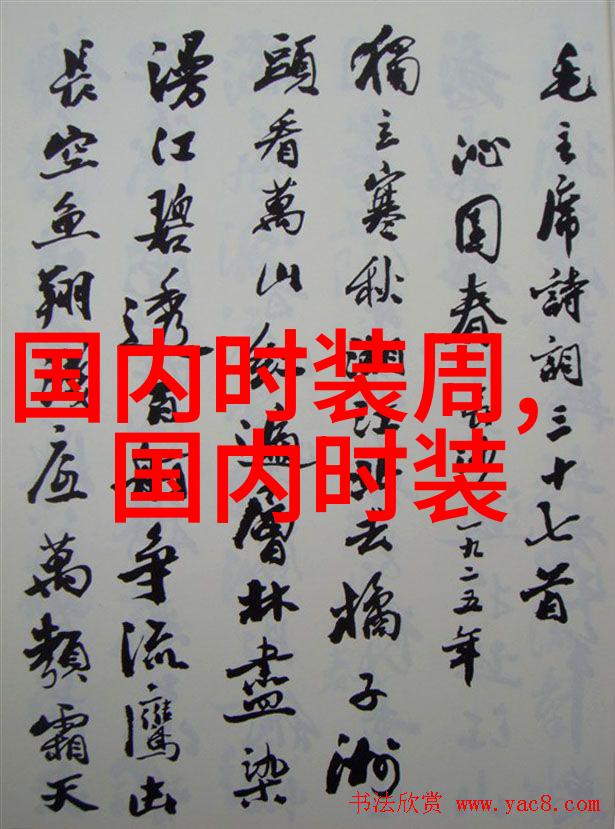 毛主席詩詞三十七首
沁園春 長沙 一九二五年
獨立寒秋湘江北去橘子洲
頭看萬山紅遍層林盡染
漫江碧透百舸争流鷹击
長空魚翔淺底萬類霜天
国内时装周,
国内时装
书法欣赏 www.yac8.com